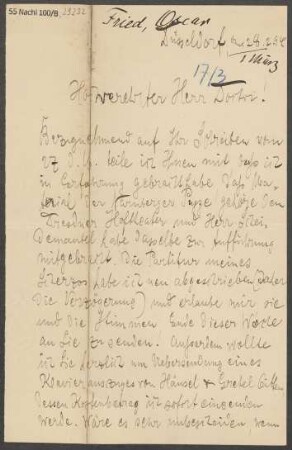 55 Nachl 100/B
Fried, Oscar
Düsseldorf
1 März
Hochverehrter Herr Doctor.
Bezugnehmend auf Ihr Schreiben vom
27 d. M. teile ich Ihnen mit dass ich
in Erfahrung gebracht habe dass
der Nürnberger Puppe gehört dem
Dresdner Hoftheater und Herr
Demantel habe dasselbe zur Aufführung
mitgebracht. Die Partitur meines
habe ich neu abgeschrieben (daher
die Verzögerung) und erlaube mir sie
und die Stimmen Ende dieser Woche
an Sie zu senden. Ausserdem wollte
ich Sie herzlich um Uebersendung eines
Klavierauszuges von Hänsel & Gretel bitten
dessen Kostenbetrag ich sofort einsenden
werde. Wäre es sehr unbescheiden, wenn